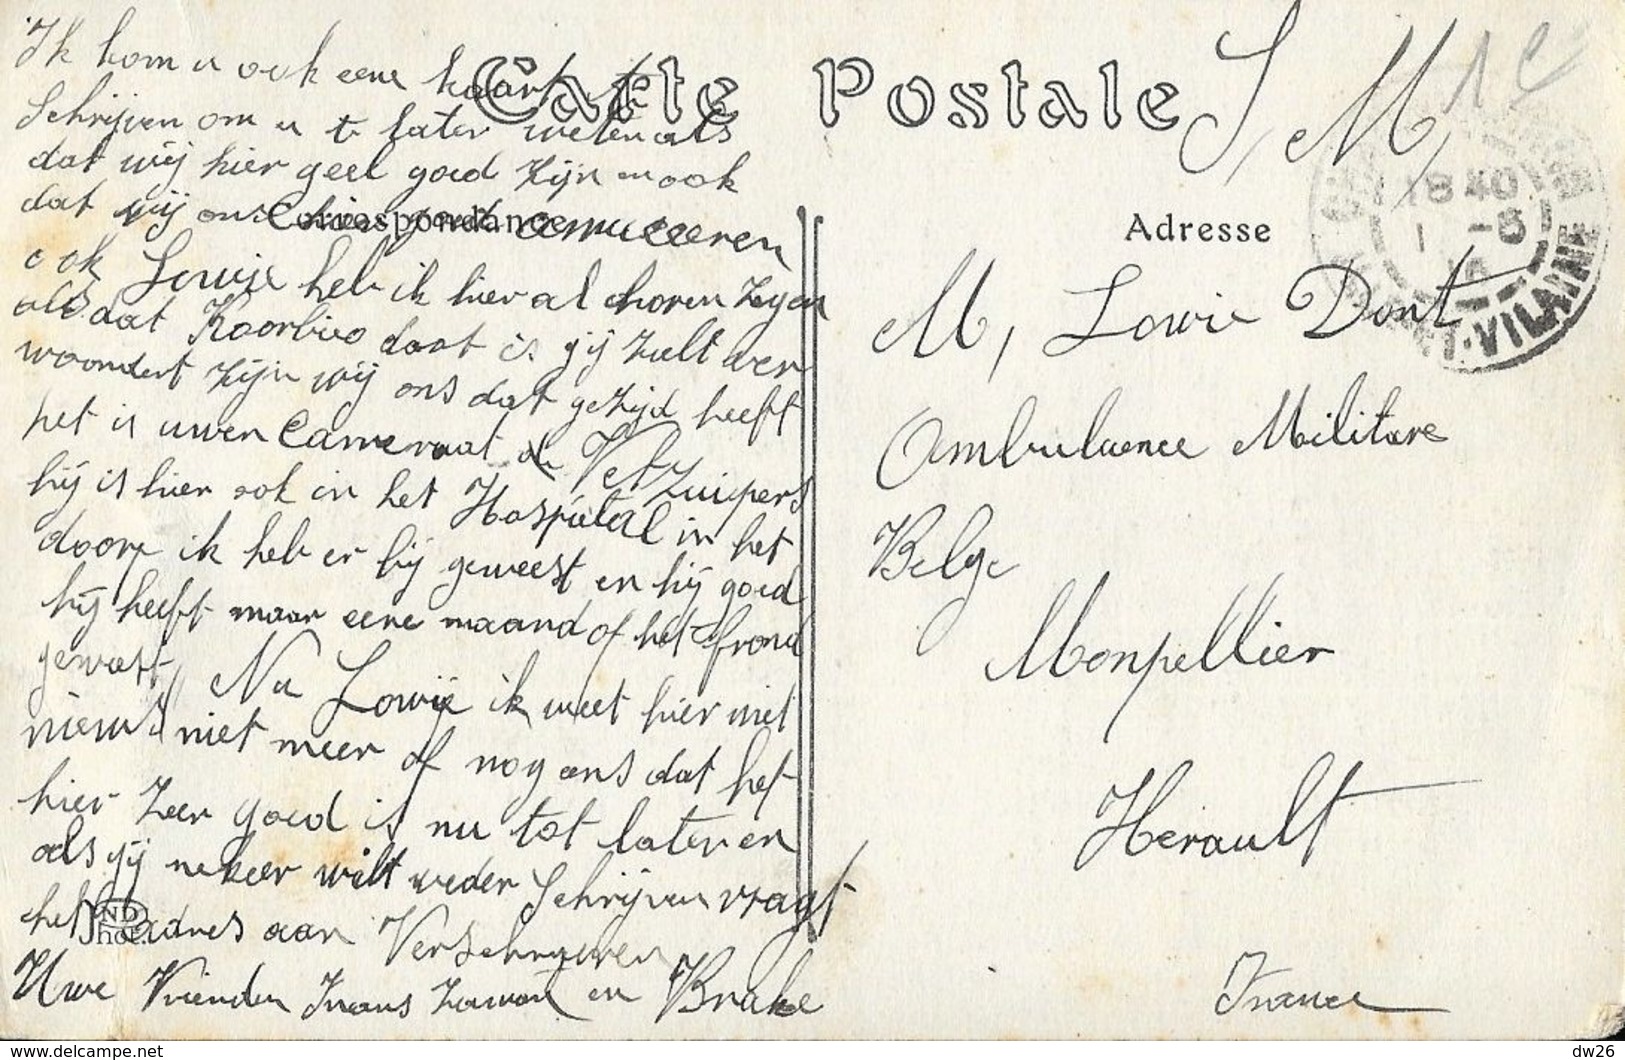 Carte Postale
S, M,
Ik kom u ook eene kaart te
Schrijven om u t later weten als
dat wij hier geel goed zijn en ook
dat wij ons hier goed amuceeren
Correspondance
ook Lowie heb ik hier al horen zegen
als dat Koorbieo doot is gij zult ver
woondert zijn wij ons dat gezijd heeft
het is uwen Cameraat de Vet Zuipers
hij is hier ook in het Hospietal in het
doorp ik heb er bij geweest en hij goed
hij heeft maar eene maand of het frond
geweest, Nu Lowije ik weet hier niet
niews niet meer of nog ens dat het
hier zeer goed is nu tot later en
als gij nekeer wilt weder Schrijven vragt
het adres aan Verschueren
Uwe Vrienden Frans en Brake
ND
Phot.
Adresse
1840
1 -8
ET-VILAINE
M, Lowie Dont
Ambulance Militare
Belge
Monpellier
Herault
France
delcampe.net
dw26